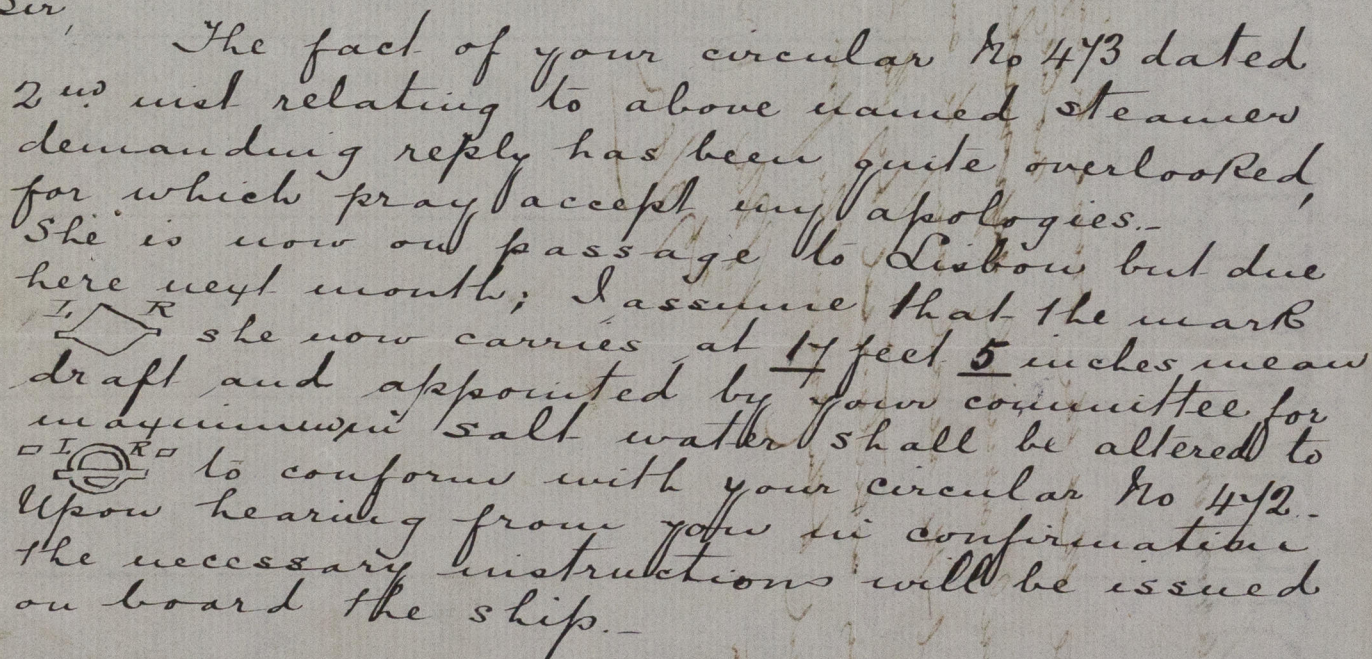 Sir,
The fact of your circular No 473 dated
2nd. inst relating to above named steamer
demanding reply has been quite overlooked,
for which pray accept my apologies.-
She is now on passage to Lisbon but due
here next month; I assume that the mark
L R she now carries at 17 feet 5 inches mean
draft and appointed by your committee for
maximum in salt water shall be altered to
L R to conform with your circular No 472.-
Upon hearing from you in confirmation
the necessary instructions will be issued
on board the ship.-